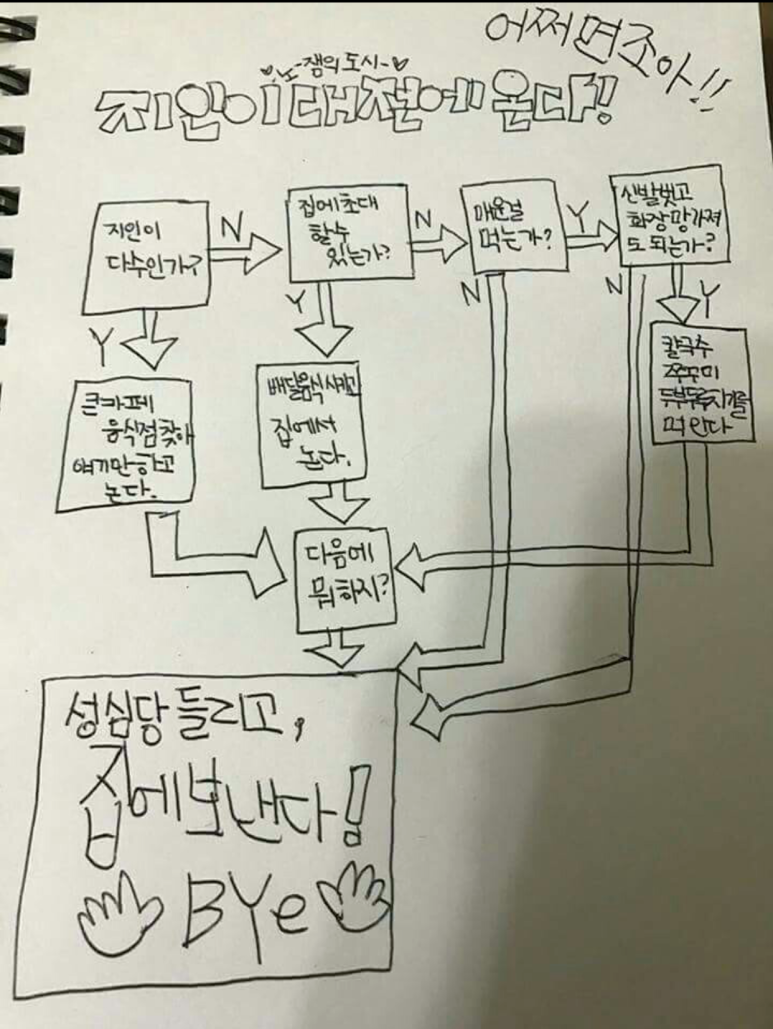 어쩌면조아!!
노-잼의도시-
지인이대전에온다!
지인이
다수인가?
N
집에초대
할수
있는가?
N
매운걸
먹는가?
Y
신발벗고
화장망가져
도되는가?
Y
Y
N
N
Y
큰카페
음식점찾아
얘기만하고
논다.
배달음식시키고
집에서
논다.
칼국수
쭈꾸미
두부두루치기를
먹인다
다음에
뭐하지?
성심당들리고,
집에보낸다!
BYe